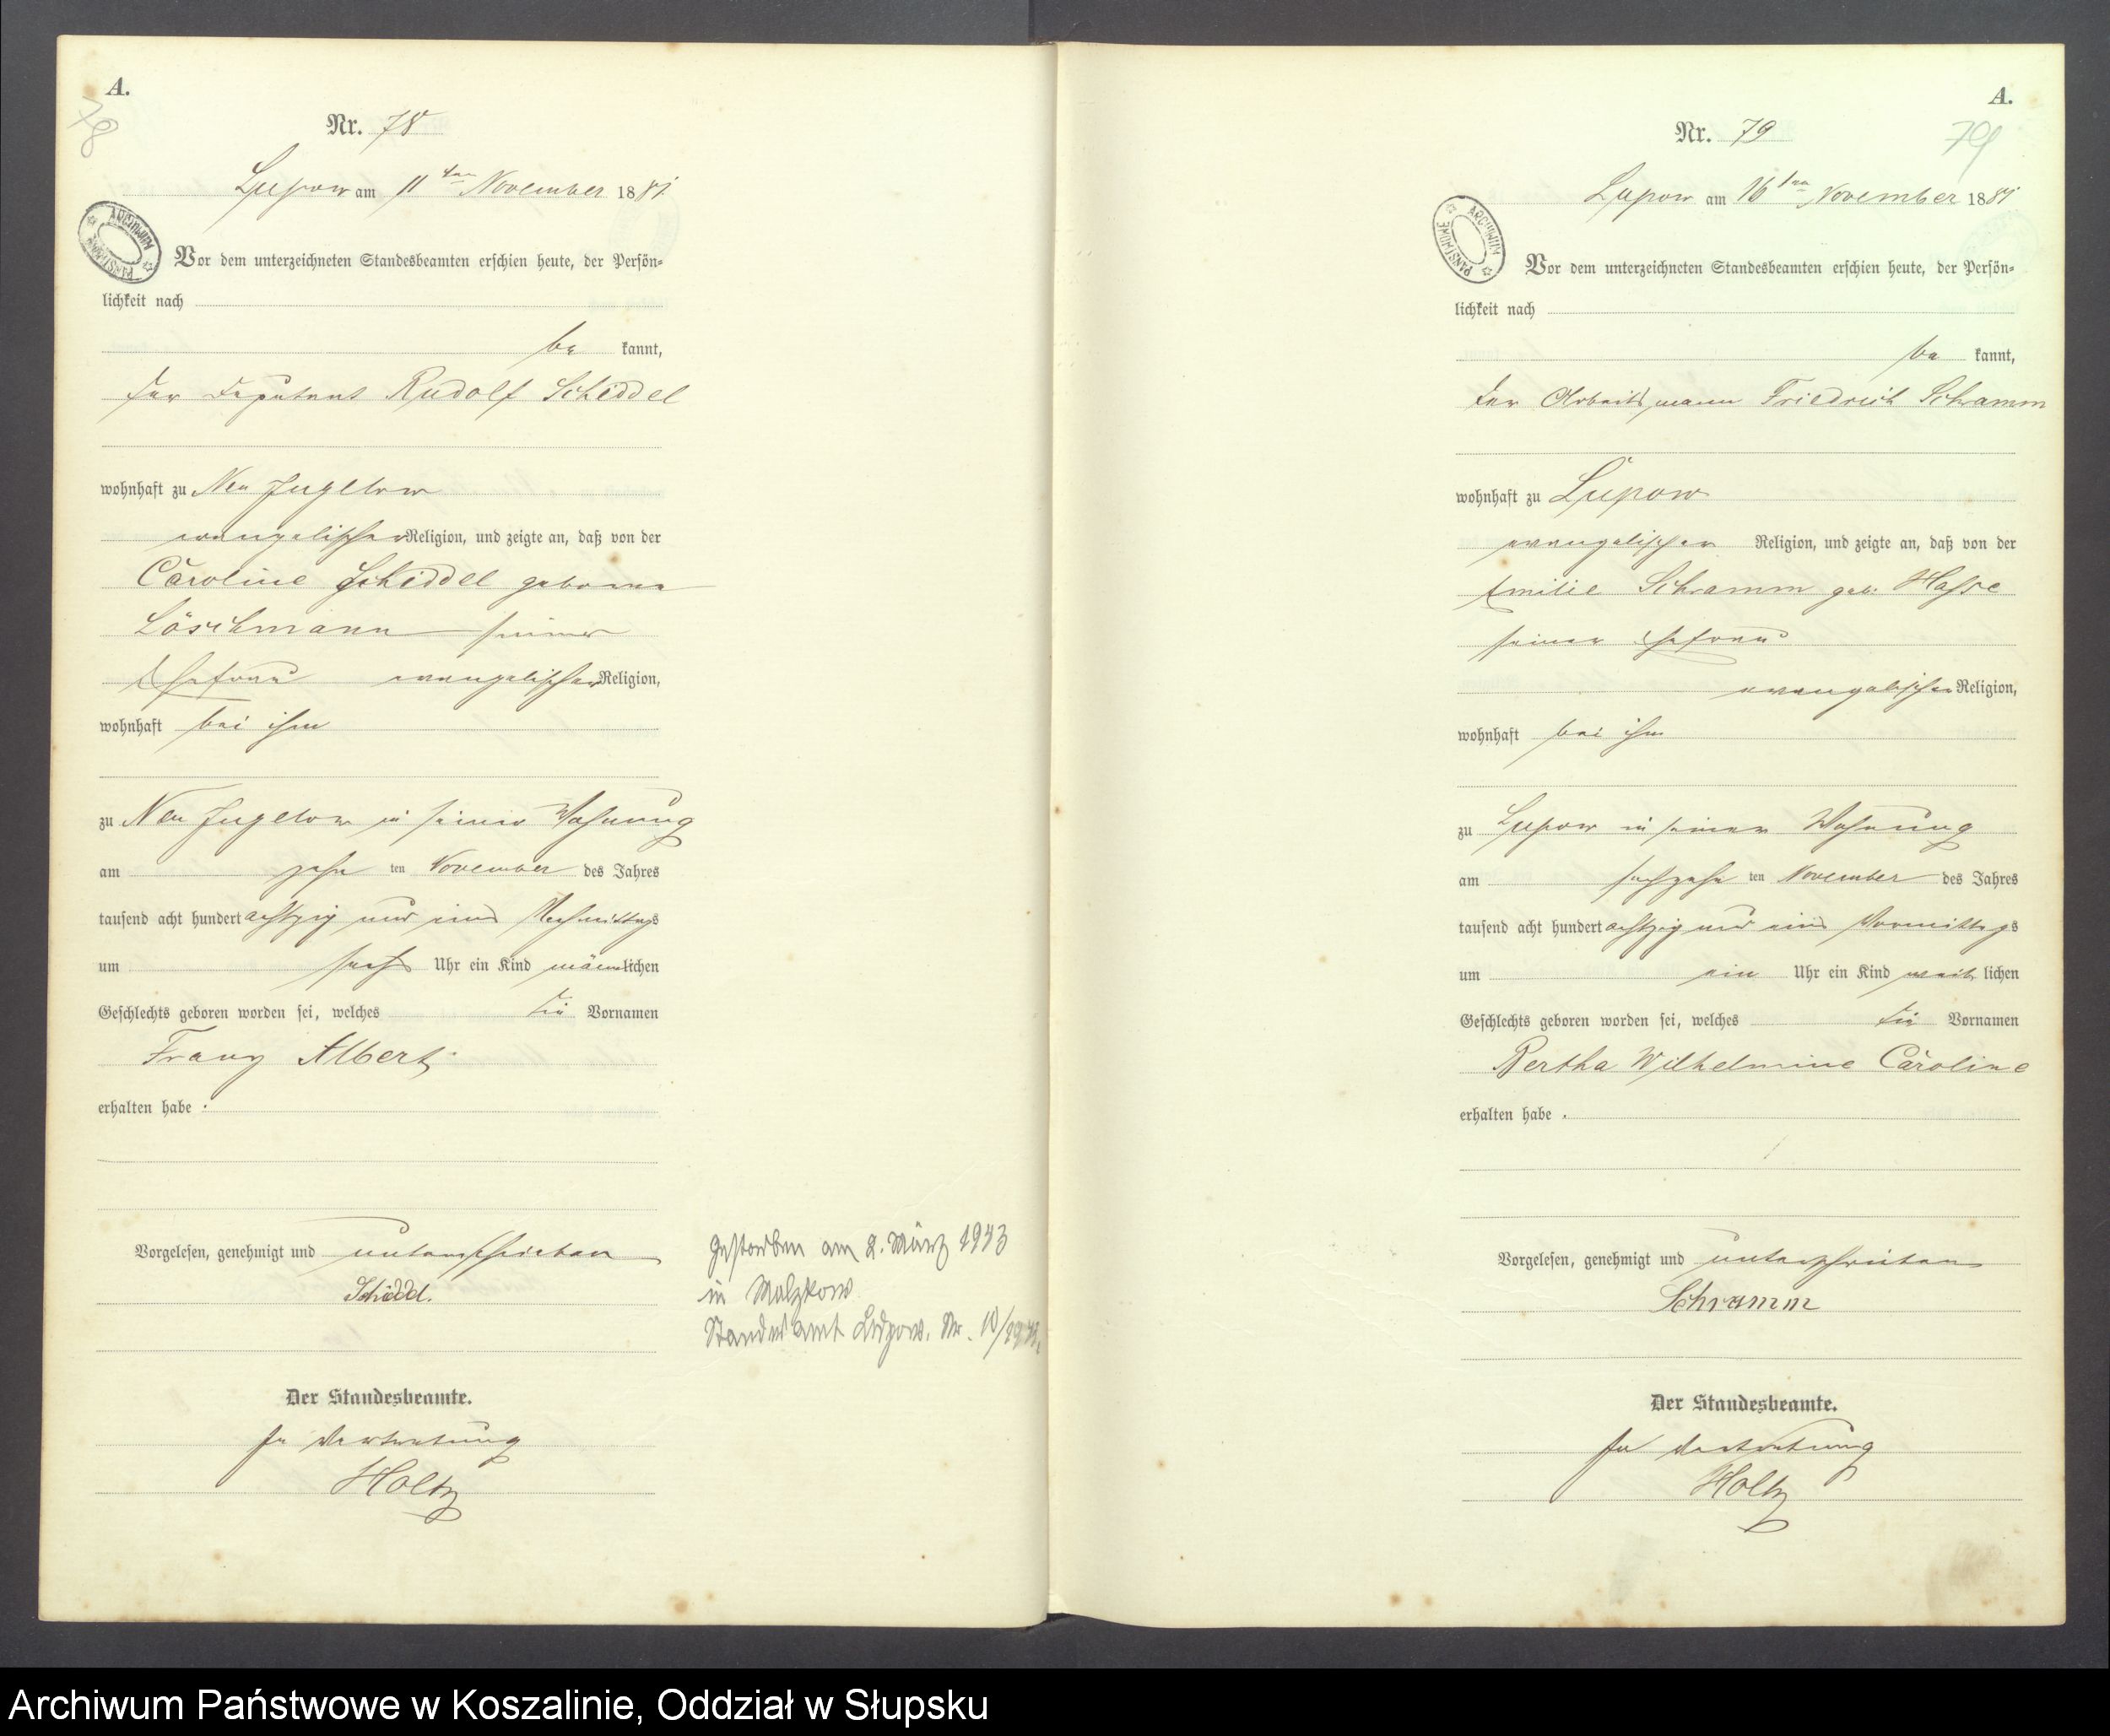 A.
78
Nr. 78
Lupow am 11ten November 1881.
Vor dem unterzeichneten Standesbeamten erschien heute, der Persön-
lichkeit nach
be kannt,
der Deputant Rudolf Schiddel
wohnhaft zu Neu Jugelow
evangelischer Religion, und zeigte an, daß von der
Caroline Schiddel geborene
Löschmann seiner
Ehefrau evangelischer Religion,
wohnhaft bei ihm
zu Neu Jugelow in seiner Wohnung
am zehn ten November des Jahres
tausend acht hundert achtzig und eins Nachmittags
um sechs Uhr ein Kind männlichen
Geschlechts geboren worden sei, welches die Vornamen
Franz Albert
erhalten habe.
Vorgelesen, genehmigt und unterschrieben
Schiddel.
Der Standesbeamte.
In Vertretung
Holtz
Gestorben am 2. März 1943
in Malzkow
Standesamt Nr. 10/1943.
ARCHIWUM PAŃSTWOWE
A.
79
Nr. 79
Lupow am 16ten November 1881
Vor dem unterzeichneten Standesbeamten erschien heute, der Persön-
lichkeit nach
be kannt,
der Arbeitsmann Friedrich Schramm
wohnhaft zu Lupow
evangelischer Religion, und zeigte an, daß von der
Emilie Schramm geb. Hasse
seiner Ehefrau
evangelischer Religion,
wohnhaft bei ihm
zu Lupow in seiner Wohnung
am sechzehn ten November des Jahres
tausend acht hundert achtzig und eins Vormittags
um ein Uhr ein Kind weib lichen
Geschlechts geboren worden sei, welches die Vornamen
Bertha Wilhelmine Caroline
erhalten habe.
Vorgelesen, genehmigt und unterschrieben
Schramm
Der Standesbeamte.
In Vertretung
Holtz
ARCHIWUM PAŃSTWOWE
Archiwum Państwowe w Koszalinie, Oddział w Słupsku